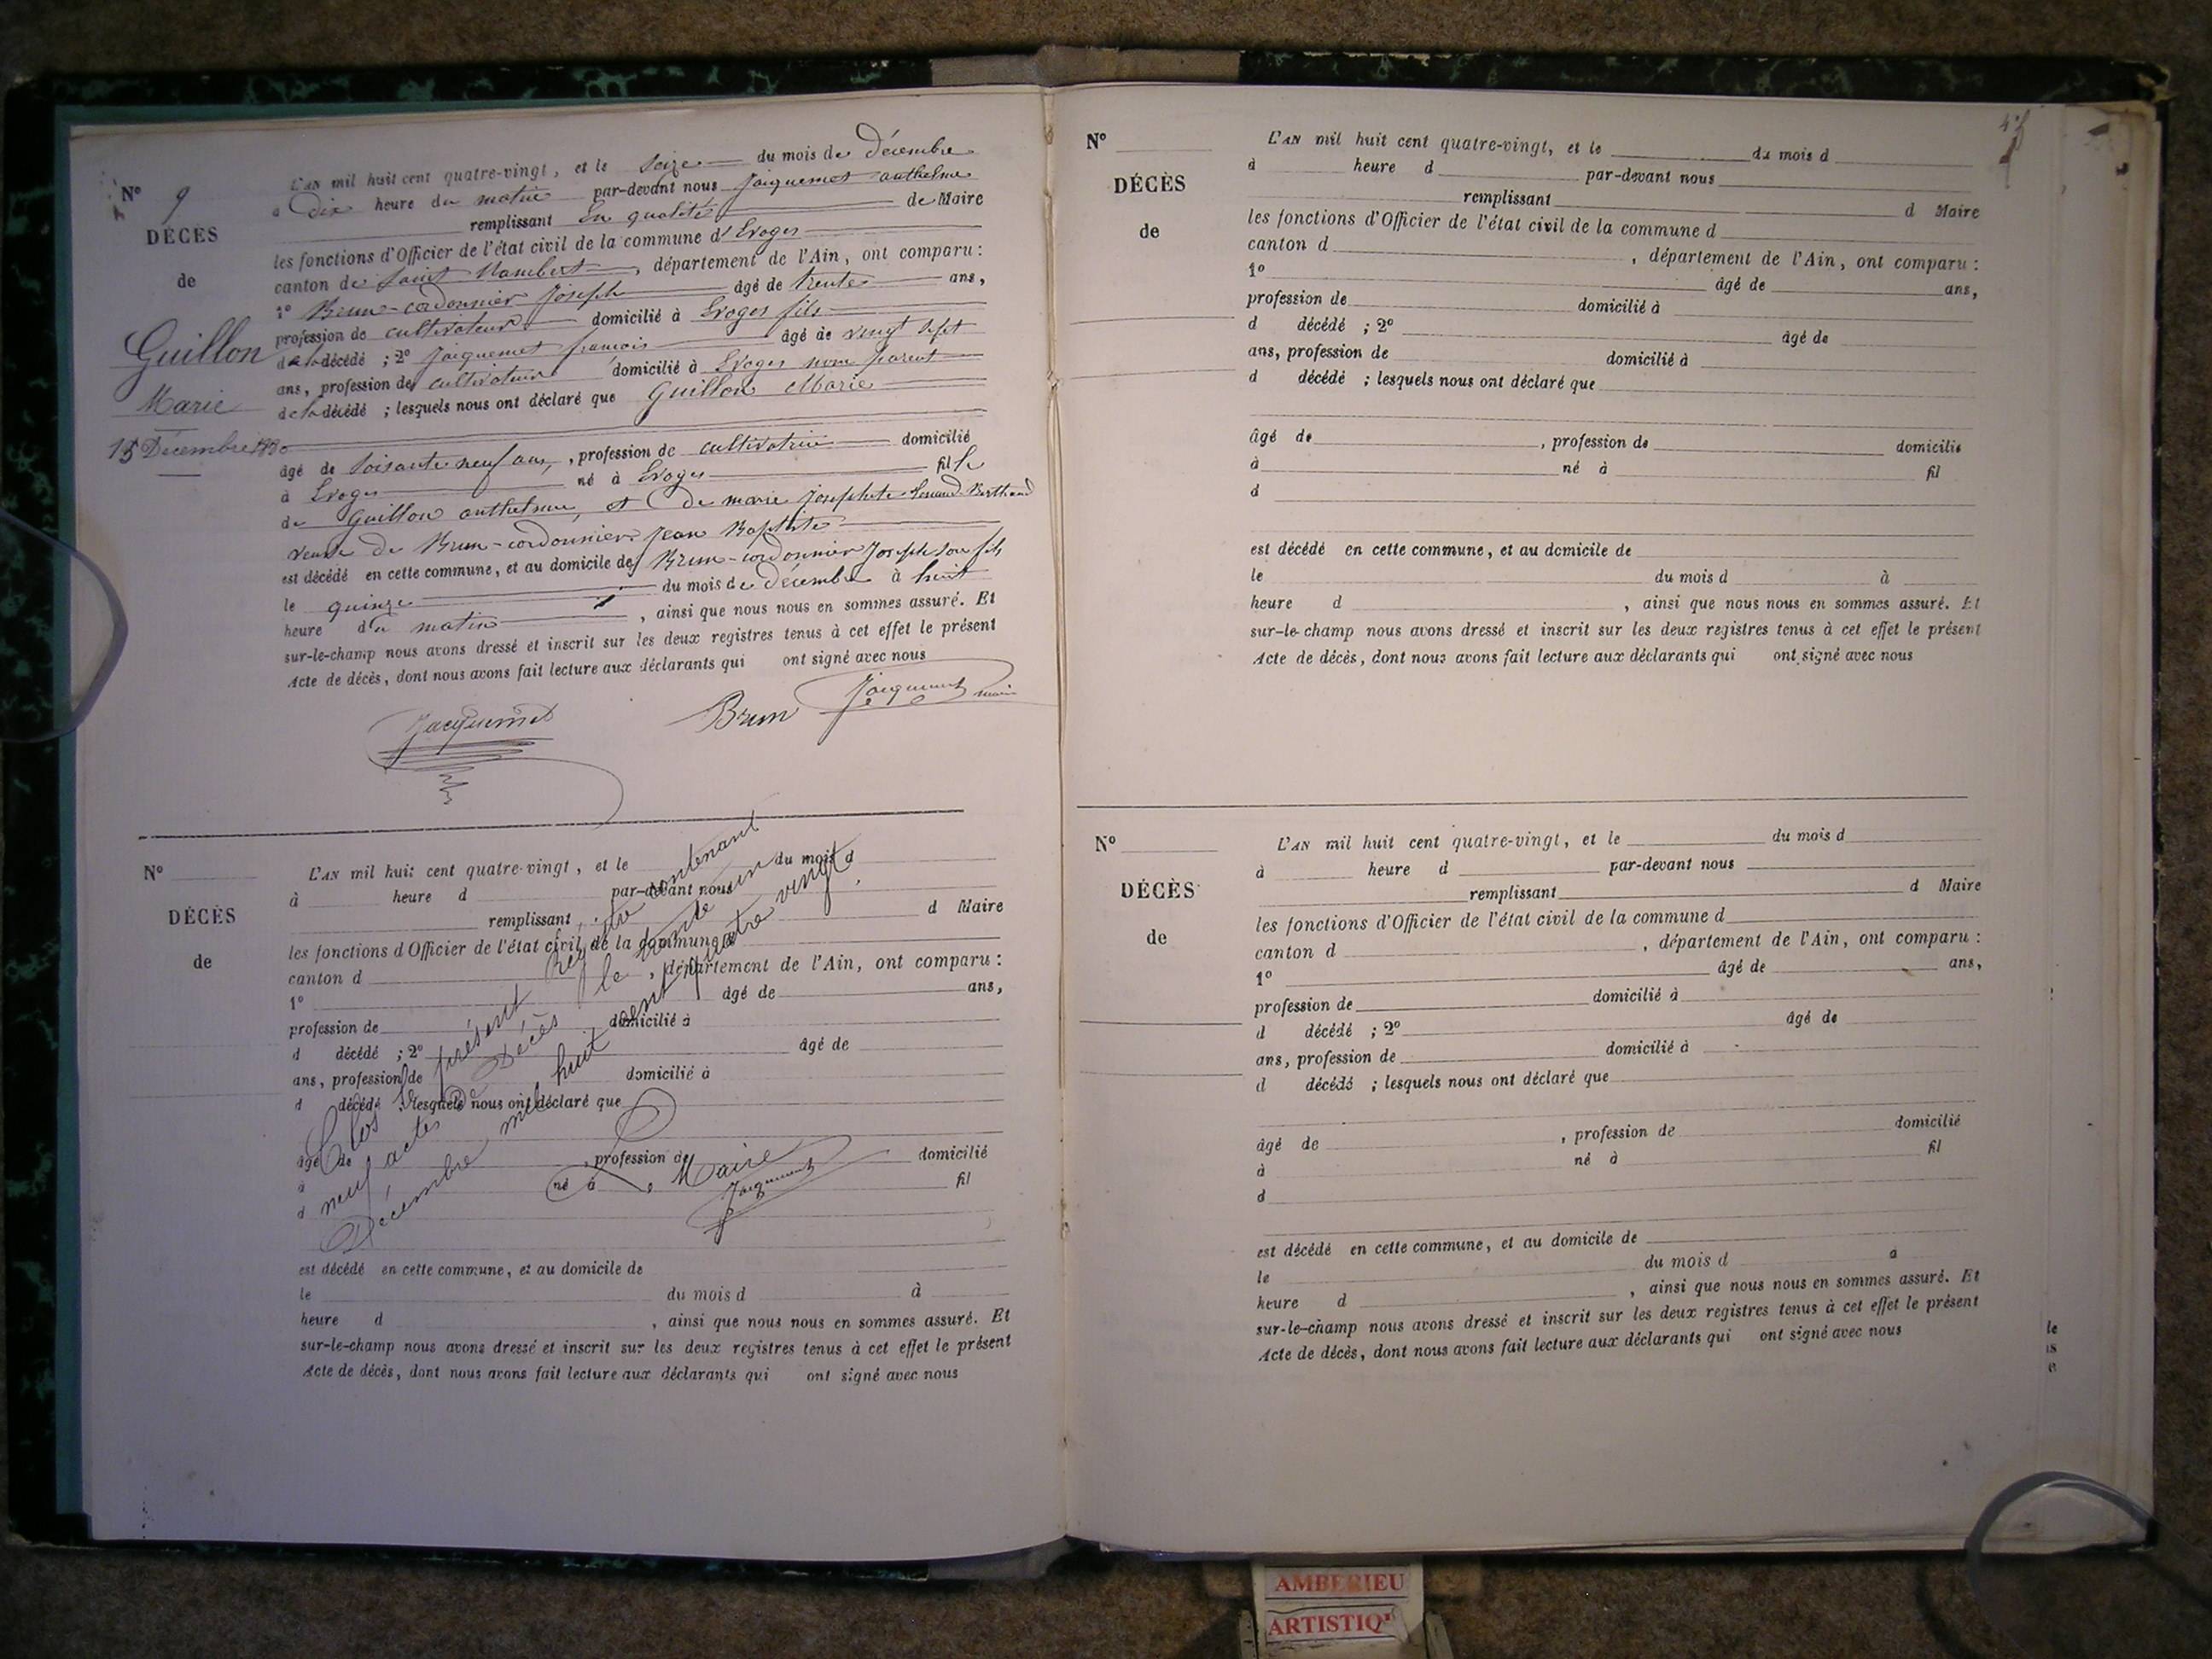 N° 9
DÉCÈS
de
Guillon
Marie
15 Décembre 1880
L'AN mil huit cent quatre-vingt, et le seize du mois de Décembre
à Dix heure du matin par-devant nous Jacquemet anthelme
remplissant En qualité de Maire
les fonctions d'Officier de l'état civil de la commune d'Evoges
canton de Saint Rambert, département de l'Ain, ont comparu:
1° Brun-cordonnier Joseph âgé de trente ans,
profession de cultivateur domicilié à Evoges fils
de la décédé ; 2° Jacquemet francois âgé de vingt sept
ans, profession de cultivateur domicilié à Evoges non parent
de la décédé ; lesquels nous ont déclaré que Guillon Marie
âgé de soisante neuf ans, profession de cultivatrice domicilié
à Evoges né à Evoges fille
de Guillon anthelme, et de marie Josephete Berthand
veuve de Brun-cordonnier Jean Baptiste
est décédé en cette commune, et au domicile de Brun-cordonnier Joseph son fils
le quinze du mois de Décembre à huit
heure du matin, ainsi que nous nous en sommes assuré. Et
sur-le-champ nous avons dressé et inscrit sur les deux registres tenus à cet effet le présent
Acte de décès, dont nous avons fait lecture aux déclarants qui ont signé avec nous
Jacquemet Brun Jacquemet maire
N°
DÉCÈS
de
L'AN mil huit cent quatre-vingt, et le du mois d
à heure d par-devant nous
remplissant d Maire
les fonctions d'Officier de l'état civil de la commune d
canton d , département de l'Ain, ont comparu:
1° âgé de ans,
profession de domicilié à
d décédé ; 2° âgé de
ans, profession de domicilié à
d décédé ; lesquels nous ont déclaré que
âgé de , profession de domicilié
à né à fil
d
est décédé en cette commune, et au domicile de
le du mois d à
heure d , ainsi que nous nous en sommes assuré. Et
sur-le-champ nous avons dressé et inscrit sur les deux registres tenus à cet effet le présent
Acte de décès, dont nous avons fait lecture aux déclarants qui ont signé avec nous
Clos le présent Registre contenant
neuf actes de Décès le trente un
Décembre mil huit cent quatre vingt.
Le Maire
Jacquemet
N°
DÉCÈS
de
L'AN mil huit cent quatre-vingt, et le du mois d
à heure d par-devant nous
remplissant d Maire
les fonctions d'Officier de l'état civil de la commune d
canton d , département de l'Ain, ont comparu:
1° âgé de ans,
profession de domicilié à
d décédé ; 2° âgé de
ans, profession de domicilié à
d décédé ; lesquels nous ont déclaré que
âgé de , profession de domicilié
à né à fil
d
est décédé en cette commune, et au domicile de
le du mois d à
heure d , ainsi que nous nous en sommes assuré. Et
sur-le-champ nous avons dressé et inscrit sur les deux registres tenus à cet effet le présent
Acte de décès, dont nous avons fait lecture aux déclarants qui ont signé avec nous
N°
DÉCÈS
de
L'AN mil huit cent quatre-vingt, et le du mois d
à heure d par-devant nous
remplissant d Maire
les fonctions d'Officier de l'état civil de la commune d
canton d , département de l'Ain, ont comparu:
1° âgé de ans,
profession de domicilié à
d décédé ; 2° âgé de
ans, profession de domicilié à
d décédé ; lesquels nous ont déclaré que
âgé de , profession de domicilié
à né à fil
d
est décédé en cette commune, et au domicile de
le du mois d à
heure d , ainsi que nous nous en sommes assuré. Et
sur-le-champ nous avons dressé et inscrit sur les deux registres tenus à cet effet le présent
Acte de décès, dont nous avons fait lecture aux déclarants qui ont signé avec nous
le
is
e
AMBERIEU
ARTISTIQ